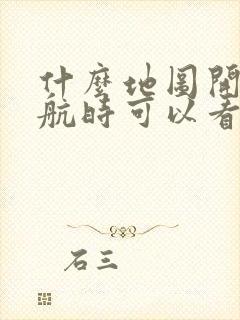 什麼地圖開
航時可以看
石三